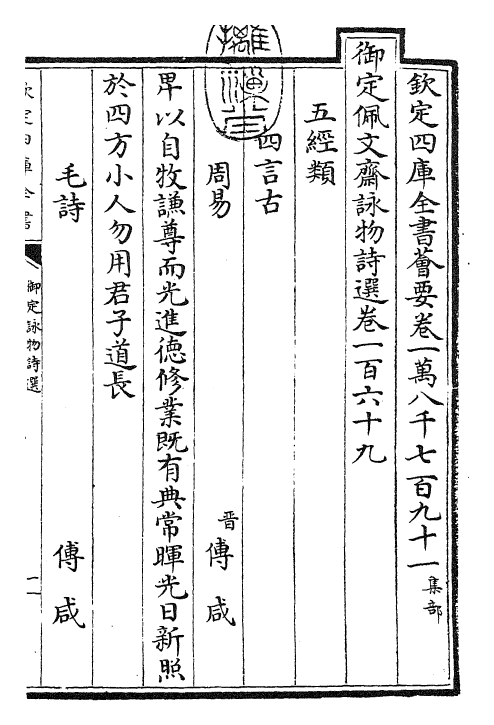 欽定四庫全書薈要卷一萬八千七百九十一集部
御定佩文齋詠物詩選卷一百六十九
五經類
四言古
周易 晋傅咸
卑以自牧謙尊而光進德修業既有典常暉光日新照
於四方小人勿用君子道長
毛詩 傅咸
欽定四庫全書
御定詠物詩選
一